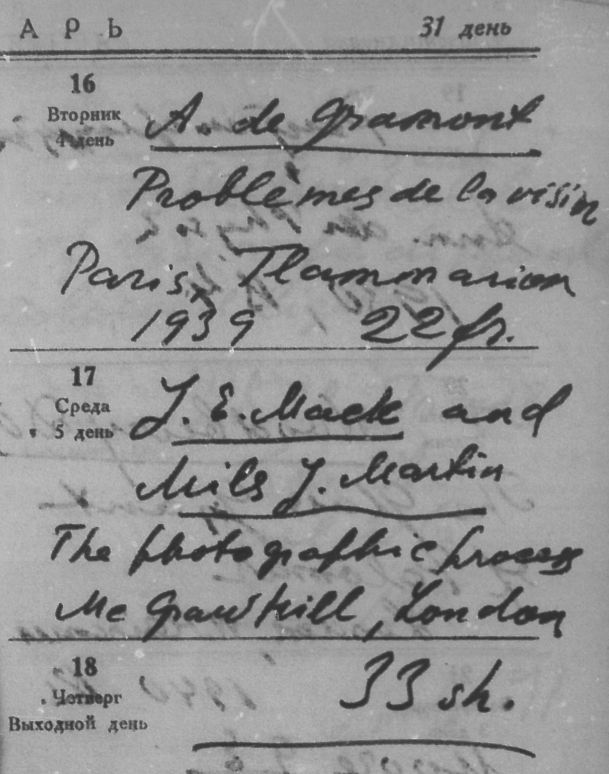 АРЬ 31 день
16
Вторник
4 день
A. de Gramont
Problèmes de la vision
Paris, Flammarion
1939 22 fr.
17
Среда
5 день
J. E. Mack and
Miles J. Martin
The photographic process
Mc Graw Hill, London
18
Четверг
Выходной день
33 sh.